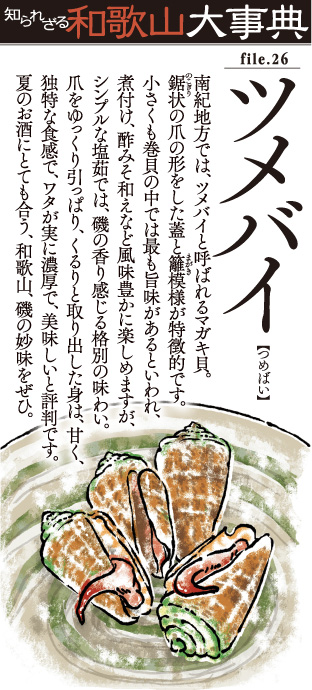 知られざる和歌山大事典
file.26
ツメバイ
【つめばい】
南紀地方では、ツメバイと呼ばれるマガキ貝。
鋸状の爪の形をした蓋と籬模様が特徴的です。
のこぎり
まがき
小さくも巻貝の中では最も旨味があるといわれ、
煮付け、酢みそ和えなど風味豊かに楽しめますが、
シンプルな塩茹では、磯の香り感じる格別の味わい。
爪をゆっくり引っぱり、くるりと取り出した身は、甘く、
独特な食感で、ワタが実に濃厚で、美味しいと評判です。
夏のお酒にとても合う、和歌山、磯の妙味をぜひ。